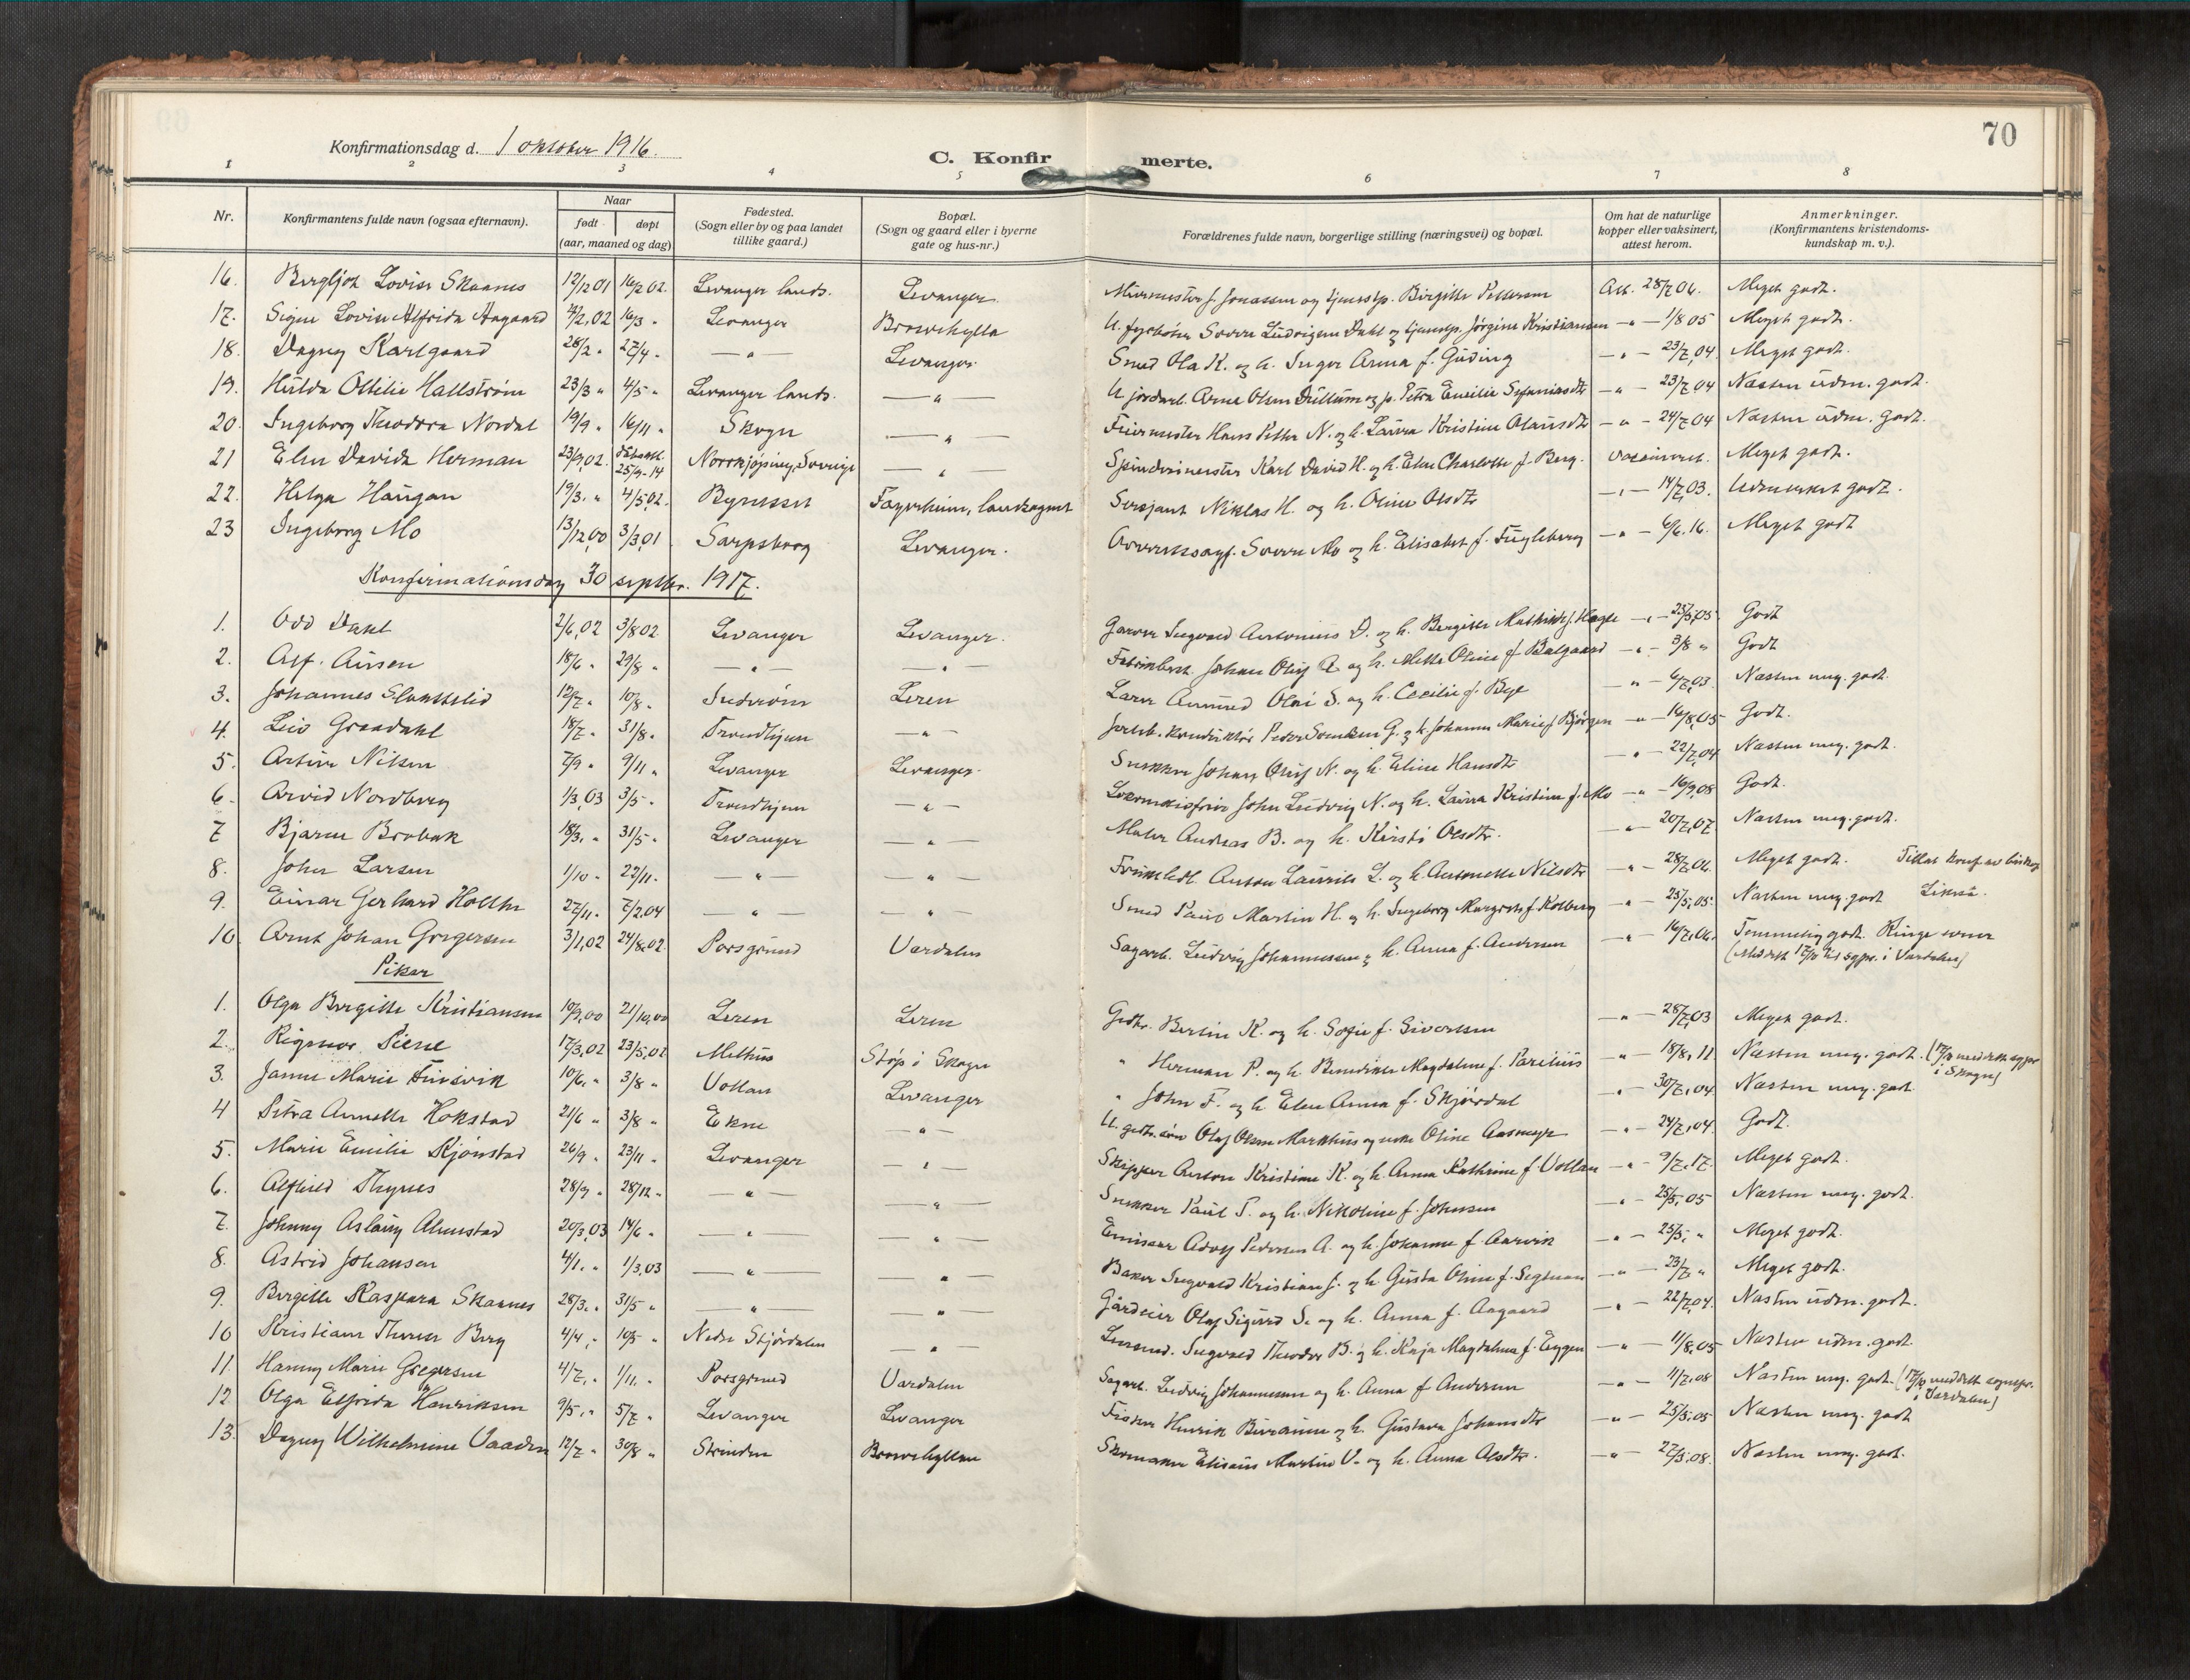 70
Konfirmationsdag d. 1 oktober 1916.
C. Konfirmerte.
1 2 3 4 5 6 7 8
Nr. Konfirmantens fulde navn (ogsaa efternavn). Naar født døpt (aar, maaned og dag) Fødested. (Sogn eller by og paa landet tillike gaard.) Bopæl. (Sogn og gaard eller i byerne gate og hus-nr.) Forældrenes fulde navn, borgerlige stilling (næringsvei) og bopæl. Om hat de naturlige kopper eller vaksinert, attest herom. Anmerkninger. (Konfirmantens kristendomskundskap m. v.).
16. Bergljot Lovise Skaanes 12/12 01 16/2 02. Levanger lands. Levanger Murmester J. Jonassen og tjenestp. Birgitte Pettersen Att. 28/7 06. Meget godt.
17. Signe Lovise Alfrida Aagaard 2/2,02 16/3 " Levanger Brusvehylla U. fyrbøter Sverre Ludvigsen Dahl og tjenestp. Jørgine Kristiansen — " — 1/8 05 Meget godt.
18. Dagny Karlgaard 28/2 " 27/4 " — " — Levanger Smed Ola K. og h. Inger Anna f. Guding — " — 23/7,04. Meget godt.
19. Hulda Ottilie Hallstrøm 23/3 " 4/5 " Levanger lands. — " — U. jordarb. Arne Olsen Dullum og p. Petra Emilie Stefaniasdtr — " — 23/7 04 Næsten udm. godt.
20. Ingeborg Theodora Nordal 19/9 " 16/11 " Skogn — " — Feiermester Hans Petter N. og h. Laura Kristine Olausdtr — " — 24/7 04 Næsten udm. godt.
21 Elsa Davida Herman 23/9,02. 25/9-14 Norrkjøping, Sverige — " — Spindemester Karl David H. og h. Elsa Charlotte f. Berg. Vaccineret. Meget godt.
22. Helga Haugan 19/3. " 4/5,02. Bynesset Fagerheim, landsognet Sersjant Niklas H. og h. Oline Olsdtr — " — 14/7,03. Udmerket godt.
23 Ingeborg Mo 13/12,00 3/3,01 Sarpsborg Levanger. Overrettssagf. Sverre Mo og h. Elisabet f. Fugleberg — " — 6/6. 16. Meget godt
Konfirmationsdag 30 septbr. 1917.
1. Odd Dahl 2/6,02 3/8 02 Levanger Levanger. Garver Ingvald Antonius D. og h. Bergitte Mathilde f. Hagte — " — 25/5,05. Godt
2. Alf Aunsen 18/6 " 29/8 " — " — — " — Fabrikbest. Johan Oluf A. og h. Mette Oline f. Balgaard — " — 3/8 " Godt
3. Johannes Slottelid 12/7 " 10/8 " Inderøen Leren Lærer Amund Olai S. og h. Cecilie f. Bye — " — 6/7,03. Næsten meg. godt.
4. Leiv Graadahl 18/7 " 31/8 " Trondhjem — " — Jernb. konduktør Peder Svendsen G. og h. Johanna Marie f. Bjørgen — " — 16/8,05 Godt.
5. Arthur Nilsen 7/9 " 9/11 " Levanger Levanger. Snekker Johan Oluf N. og h. Eline Hansdtr — " — 22/7,04 Næsten meg. godt.
6. Arvid Nordberg 1/3,03 3/5 " Trondhjem — " — John Ludvig N. og h. Laura Kristine f. Mo — " — 16/9,08 Godt.
7 Bjarne Brobak 18/3. " 31/5 " Levanger — " — Maler Andreas B. og h. Kirsti Olsdtr. — " — 20/7,07. Næsten meg. godt.
8. John Larsen 1/10 " 22/11. — " — — " — Anton Laurits L. og h. Antonette Nilsdtr — " — 28/7,06. Meget godt. Tillat konf. av biskop
9. Einar Gerhard Holthe 27/11 " 7/2.04 — " — — " — Smed Paul Martin H. og h. Ingeborg Margrete f. Kolberg — " — 25/5,05. Næsten meg. godt Likesaa.
10. Arnt Johan Gregersen 3/1,02 24/8,02. Porsgrund Værdalen Sagarb. Ludvig Johannessen og h. Anna f. Andersen — " — 16/7,06. Temmelig godt. Ringe evner
(Meddelt 17/10 til sgpr. i Værdalen)
Piker
1. Olga Bergitte Kristiansen 10/9,00 21/10,00 Leren Leren Gaardbr. Bertin K. og h. Sofie f. Sivertsen — " — 28/7,03 Meget godt.
2. Rigmor Piene 17/3,02 23/5,02 Melhus Støp i Skogn " Herman P. og h. Benedikte Magdalene f. Parelius — " — 18/8, 11. Næsten meg. godt. (17/10 meddelt sgpr. i Skogn)
3. Janna Marie Finsvik 10/6. " 3/8 " Vollan Levanger " John F. og h. Elen Anna f. Skjørdal — " — 30/7,04. Næsten meg. godt.
4 Petra Annette Hokstad 21/6 " 3/8 " Ekne — " — U. gaardbr. søn Olaf Olsen Markhus og enke Oline Aasmyr — " — 24/7,04. Godt.
5. Marie Emilie Kjønstad 26/9 " 23/11 " Levanger — " — Skipper Anton Kristian K. og h. Anna Kathrine f. Vollan — " — 9/7. 17. Meget godt.
6. Alfhild Thynes 28/9 " 28/12 " — " — — " — Snekker Paul T. og h. Nikoline f. Johnsen — " — 25/5, 05 Næsten meg. godt.
7. Johnny Aslaug Almestad 20/3,03 14/6 " — " — — " — Emissær Adolf Pedersen A. og h. Johanne f. Aarvik — " — 25/5, " Meget godt.
8. Astrid Johansen 4/1. " 1/3,03 — " — — " — Baker Ingvald Kristian J. og h. Gusta Oline f. Segtnan — " — 23/7 " Meget godt.
9. Bergitte Kaspara Skaanes 28/3. " 31/5 " — " — " Gårdeier Olaf Sigurd S. og h. Anna f. Aagaard — " — 22/7,04. Næsten udm. godt.
10 Kristiane Therese Berg 4/4. " 10/5 " Nedre Stjørdalen — " — Lensmd. Ingvald Theodor B. og h. Kaja Magdalena f. Eggen — " — 11/8,05 Næsten udm. godt.
11. Hanny Marie Gregersen 4/7. " 1/11. " Porsgrund Værdalen Sagarb. Ludvig Johannessen og h. Anna f. Andersen — " — 11/7,08 Næsten meg. godt. (17/10 meddelt sognepr. i Værdalen)
12. Olga Elfrida Henriksen 9/5. " 5/7 " Levanger Levanger Fisker Henrik og h. Gustava Johansdtr — " — 25/5,05 Næsten meg. godt
13. Dagny Wilhelmine Vaaden 12/7 " 30/8 " Strinden Brusvehyllen Skomaker Elisæus Martin V. og h. Anna Olsdtr. — " — 27/3,08. Næsten meg. godt.